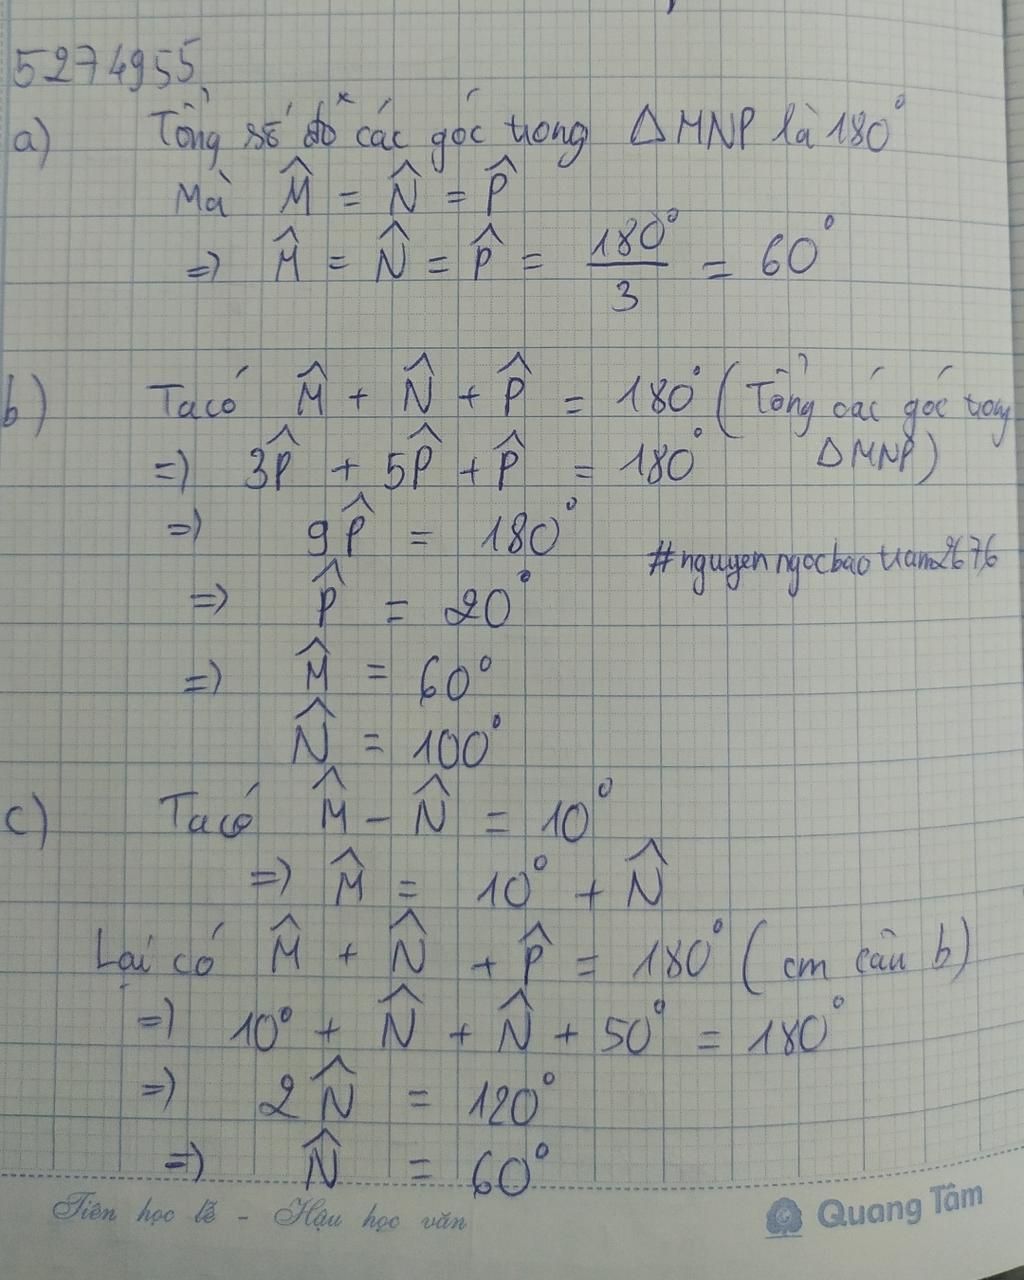 5274955
a) Tổng số đo các góc trong ΔMNP là 180°
Mà M̂ = N̂ = P̂
=> M̂ = N̂ = P̂ = 180°/3 = 60°
b) Ta có M̂ + N̂ + P̂ = 180° (Tổng các góc trong
ΔMNP)
=> 3P̂ + 5P̂ + P̂ = 180°
=> 9P̂ = 180°
#nguyenngocbaotram2676
=> P̂ = 20°
=> M̂ = 60°
N̂ = 100°
c) Ta có M̂ - N̂ = 10°
=> M̂ = 10° + N̂
Lại có M̂ + N̂ + P̂ = 180° (cm câu b)
=> 10° + N̂ + N̂ + 50° = 180°
=> 2N̂ = 120°
=> N̂ = 60°
Tiên học lễ - Hậu học văn
Quang Tâm